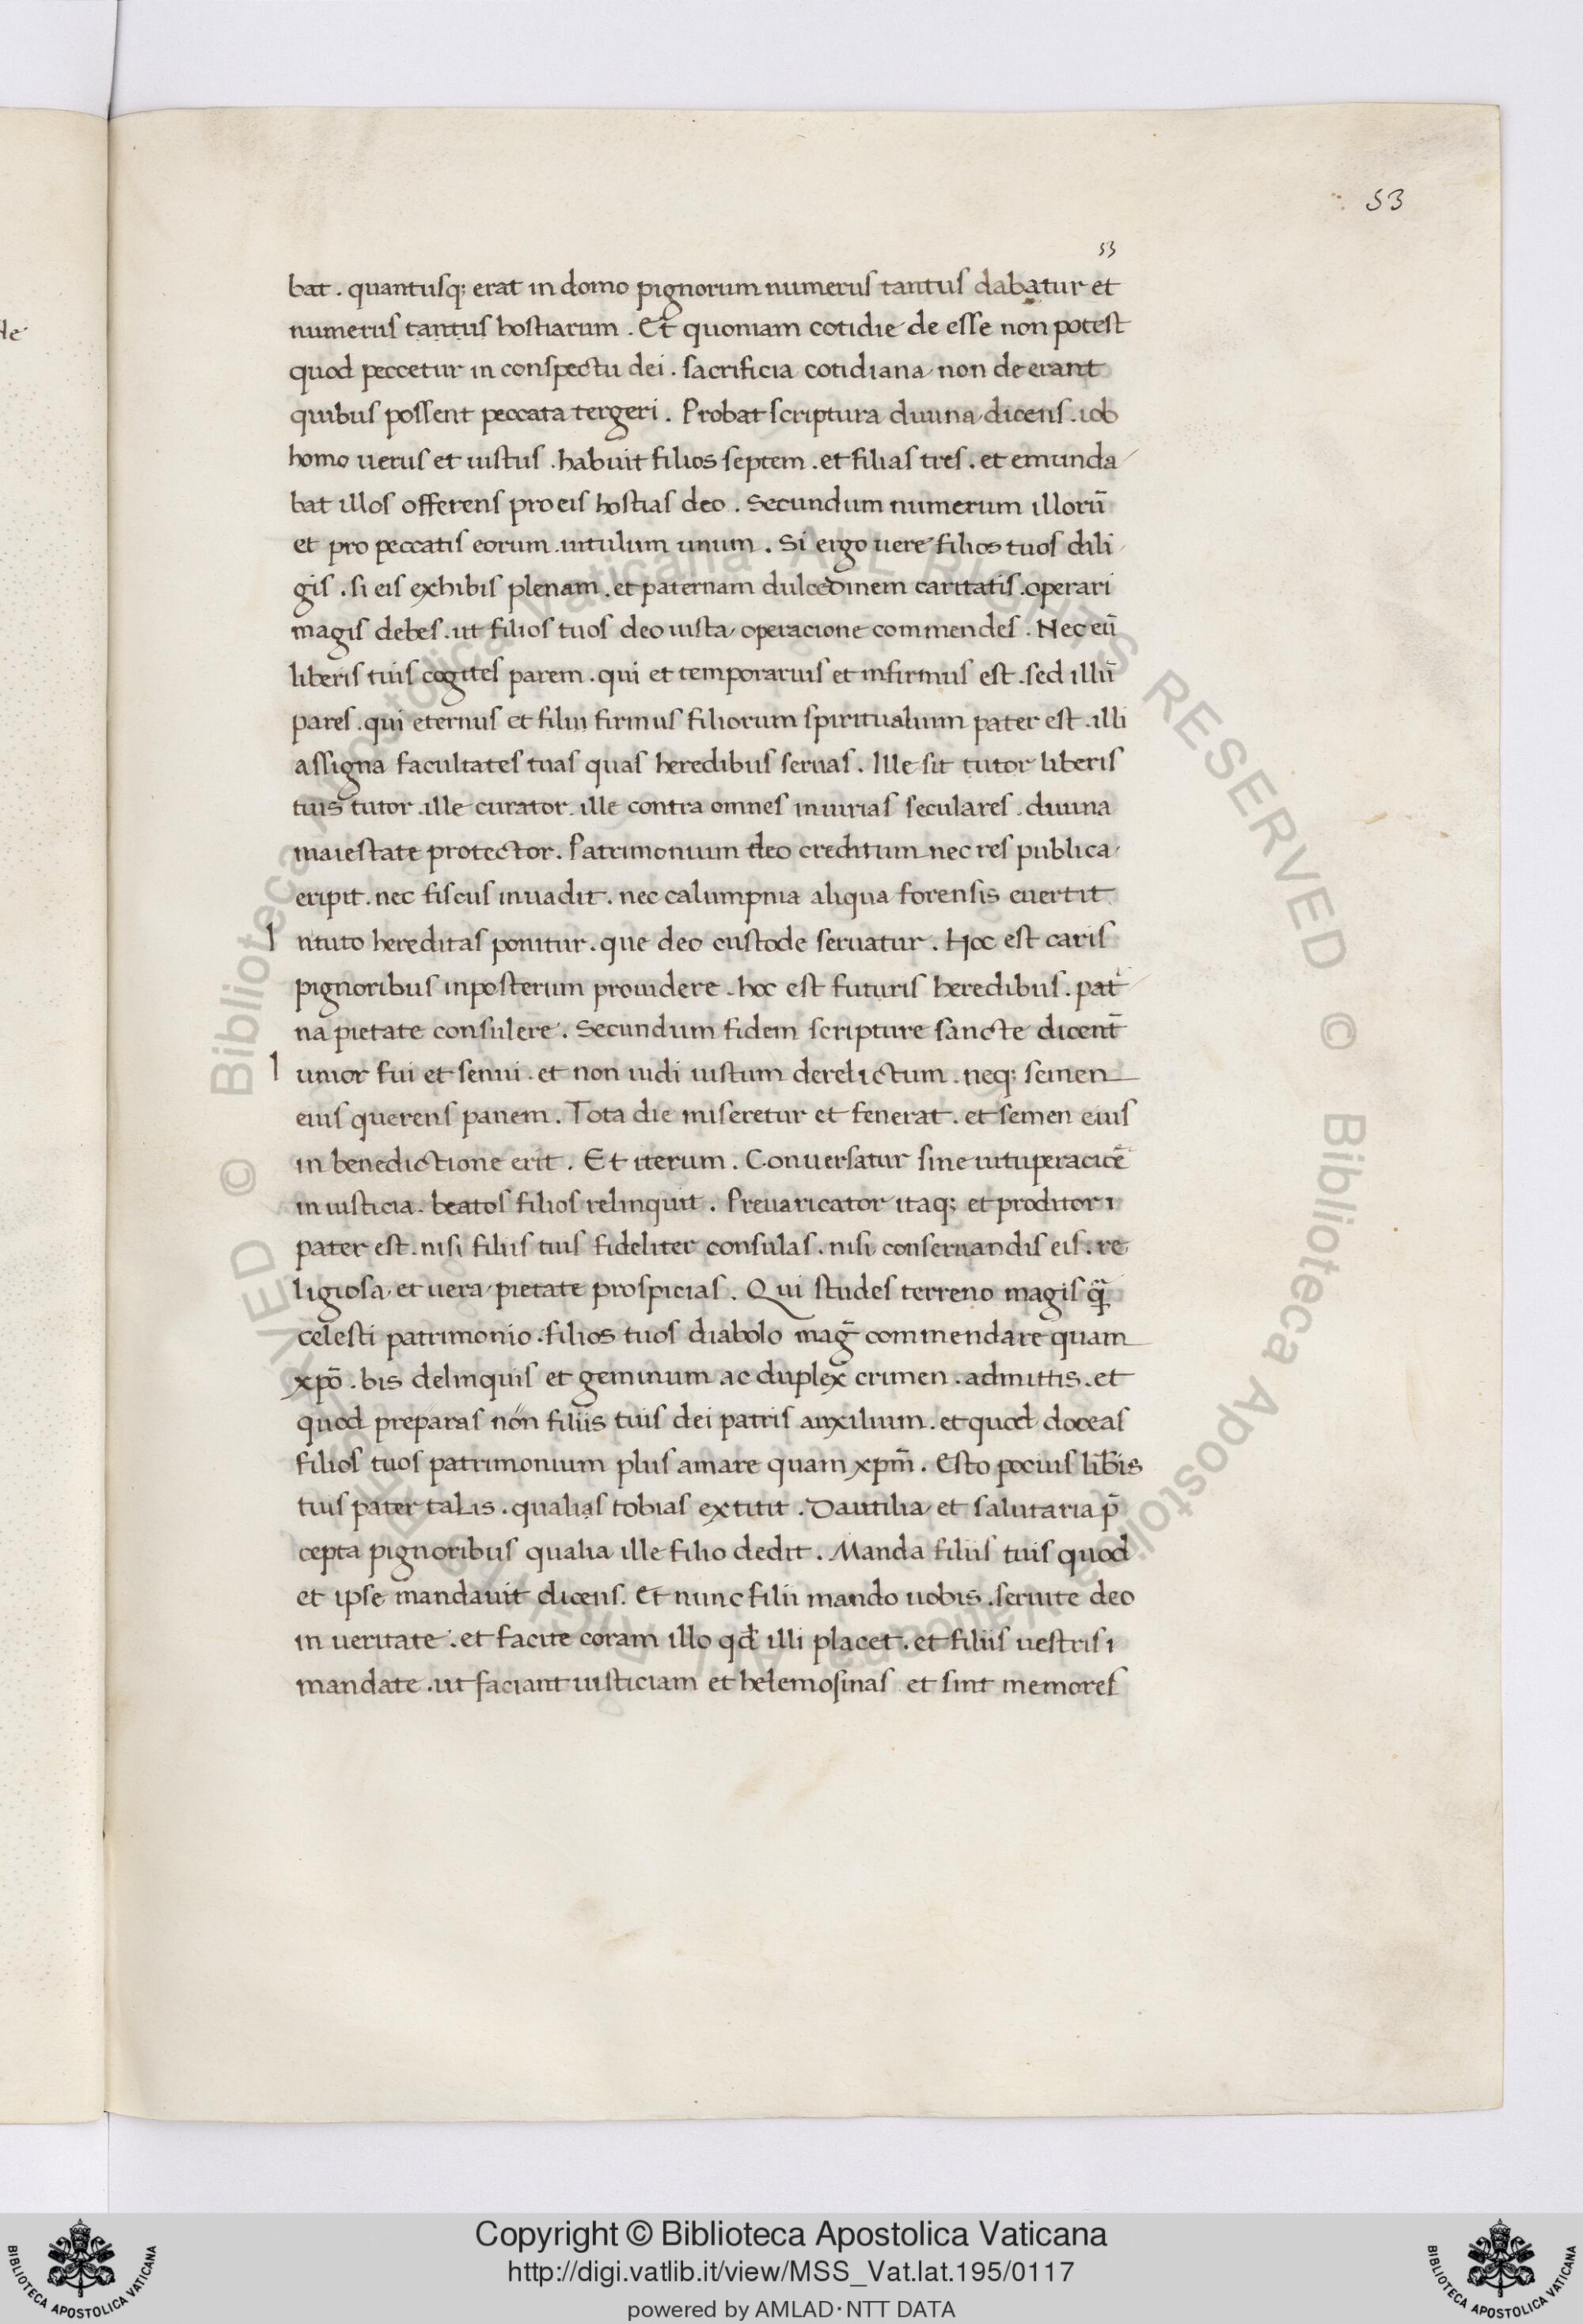 53
53
bat . quantusq; erat in domo pignorum numerus tantus dabatur et
numerus tantus hostiarum . Et quoniam cotidie de esse non potest
quod peccetur in conspectu dei . sacrificia cotidiana non de erant
quibus possent peccata tergeri . Probat scriptura diuina dicens . iob
homo uerus et iustus . habuit filios septem . et filias tres . et emunda
bat illos offerens pro eis hostias deo . Secundum numerum illorū
et pro peccatis eorum . uitulum unum . Si ergo uere filios tuos dili
gis . si eis exhibis plenam . et paternam dulcedinem caritatis . operari
magis debes . ut filios tuos deo iusta operacione commendes . Nec eū
liberis tuis cogites parem . qui et temporarius et infirmus est . sed illū
pares . qui eternus et filiu firmus filiorum spiritualium pater est . illi
assigna facultates tuas quas heredibus seruas . Ille sit tutor liberis
tuis tutor . ille curator . ille contra omnes iniurias seculares . diuina
maiestate protector . Patrimonium deo creditum nec res publica
eripit . nec fiscus inuadit . nec calumpnia aliqua forensis euertit
I ntuto hereditas ponitur . que deo custode seruatur . Hoc est caris
pignoribus inposterum prouidere . hoc est futuris heredibus . pat̄
na pietate consulere . Secundum fidem scripture sancte dicent̄
I unior fui et senui . et non uidi iustum derelictum . neq; semen
eius querens panem . Tota die miseretur et fenerat . et semen eius
in benedictione erit . Et iterum . Conuersatur sine uituperacicē
in iusticia . beatos filios relinquit . Preuaricator itaq; et proditor i
pater est . nisi filiis tuis fideliter consulas . nisi conseruandis eis . re
ligiosa et uera pietate prospicias . Qui studes terreno magis q̄
celesti patrimonio . filios tuos diabolo maḡ commendare quam
xpō . bis delinquis et geminum ac duplex crimen . admittis . et
quod preparas non filiis tuis dei patris auxilium . et quod doceas
filios tuos patrimonium plus amare quam xpm̄ . Esto pocius lib̄is
tuis pater talis . qualias tobias extitit . Dautilia et salutaria p̄
cepta pignoribus qualia ille filio dedit . Manda filiis tuis quod
et ipse mandauit dicens . Et nunc filii mando uobis . seruite deo
in ueritate . et facite coram illo qđ illi placet . et filiis uestris i
mandate . ut faciant iusticiam et helemosinas et sint memores
© Biblioteca Apostolica Vaticana ALL RIGHTS RESERVED © Biblioteca Apostolica Vaticana ALL RIGHTS RESERVED
Copyright © Biblioteca Apostolica Vaticana
http://digi.vatlib.it/view/MSS_Vat.lat.195/0117
powered by AMLAD·NTT DATA
BIBLIOTECA APOSTOLICA VATICANA
BIBLIOTECA APOSTOLICA VATICANA